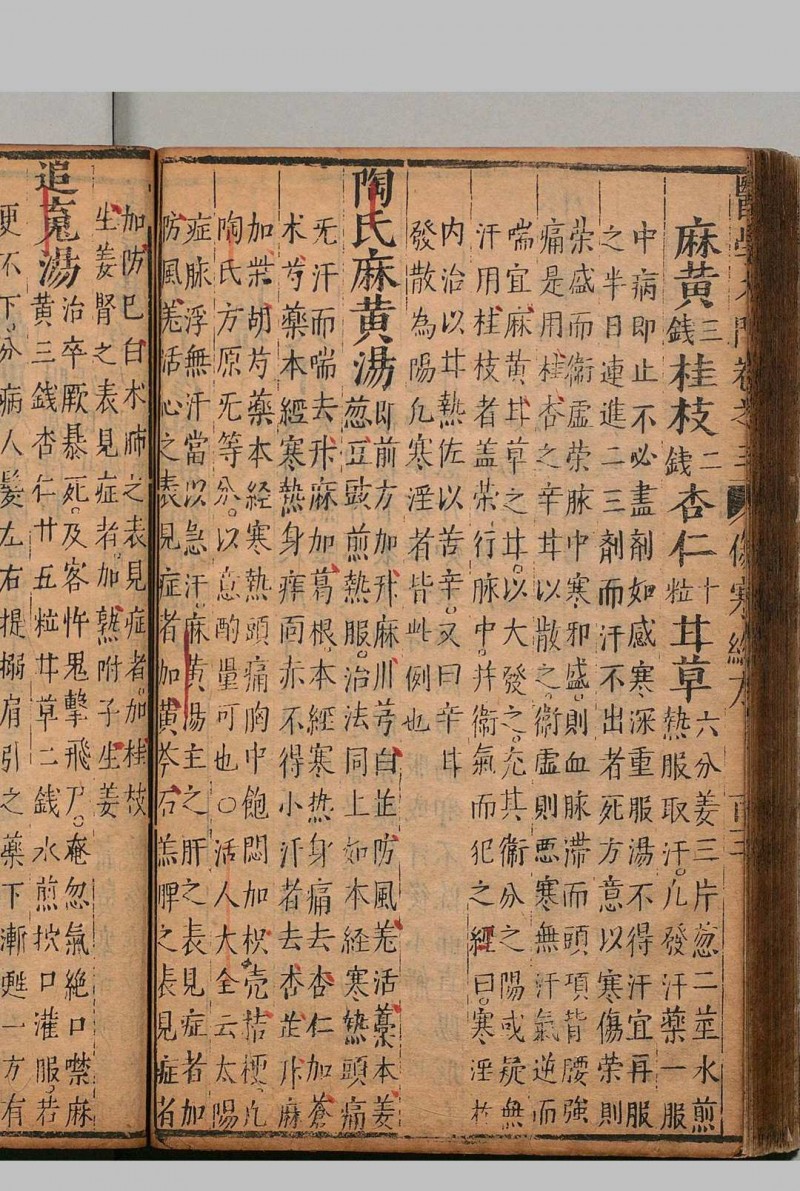 麻黃三錢桂枝二錢杏仁十粒甘草六分姜三片葱二莖水煎
熱服取汗○凡發汗藥一服
中病即止不必盡劑如感寒深重服湯不得汗宜再服
之半日連進二三劑而汗不出者死方意以寒傷榮則
榮盛而衞虛榮脉中寒邪盛則血脉滯而頭項背腰強
痛是用桂杏之辛甘以散之衞虛則惡寒無汗氣逆而
喘宜麻黃甘草之甘以大發之充其衞分之陽或疑無
汗用桂枝者盖榮行脉中并衞氣而犯之經曰寒淫於
內治以甘熱佐以苦辛又曰辛甘
發散為陽凡寒淫者皆此例也
陶氏麻黃湯即前方加升麻川芎白芷防風羌活藁本姜
葱豆豉煎熱服○治法同上如本經寒熱頭痛
无汗而喘去升麻加葛根本經寒热身痛去杏仁加蒼
术芍藥本經寒熱身痒靣赤不得小汗者去杏芷升麻
加柴胡芍藥本經寒熱頭痛胸中飽悶加枳壳桔梗凡
陶氏方原无等分以意酌量可也○活人大全云太陽
症脉浮無汗當以急汗麻黃湯主之肝之表見症者加
防風羌活心之表見症者加黃芩石羔脾之表見症者
加防已白术肺之表見症者加桂枝
生姜腎之表見症者加熟附子生姜
追䰟湯治卒厥暴死及客忤鬼擊飛尸奄忽氣絶口噤麻
黃三錢杏仁廿五粒甘草二錢水煎挍口灌服若
更不下分病人髮左右提搦肩引之藥下漸甦一方有